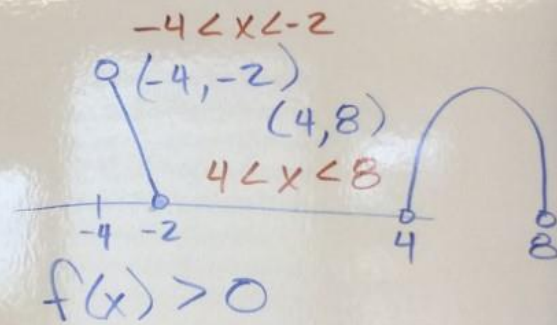 -4 < x < -2
(-4, -2)
(4, 8)
4 < x < 8
-4 -2 4 8
f(x) > 0